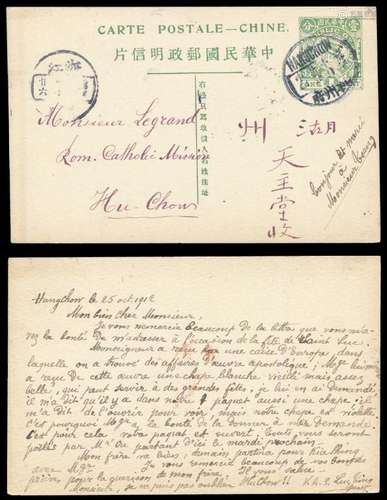 CARTE POSTALE—CHINE.
中華民國郵政明信片
HANGCHOW
杭州府
浙江
右邊只寫收信人名姓住址
Monsieur Legrand
Rom. Catholic Mission
Hu-Chow
湖州
天主堂收
bonjour et merci
à
Monsieur
Hangchow le 25 oct 1912
Mon bien cher Monsieur,
Je vous remercie beaucoup de la lettre que vous m'a-
vez la bonté de m'adresser à l'occasion de la fête de Saint Luc.
Monseigneur a reçu hier une caisse d'Europe, dans
laquelle on a trouvé des affaires d'œuvre apostolique; Mgr
a reçu de cette œuvre une chape blanche, vieille mais assez
belle, qui peut servir à des grandes fêtes, je lui en ai demandé
il m'a dit qu'il y a dans notre paquet aussi une chape, il
m'a dit de l'ouvrir pour voir, mais notre chape est violette
c'est pourquoi Mgr a la bonté de la donner à votre demande.
C'est pour cela votre paquet est ouvert. Toute vous seront
portés par Mr. Ou partant d'ici le mardi prochain.
Mon frère ira bien, demain partira pour Kia-shing
avec Mgr. Je vous remercie beaucoup de vos bontés
pour la guérison de mon frère. Il vous salue.
Monsieur, ne vais pas oublier Huchow!!